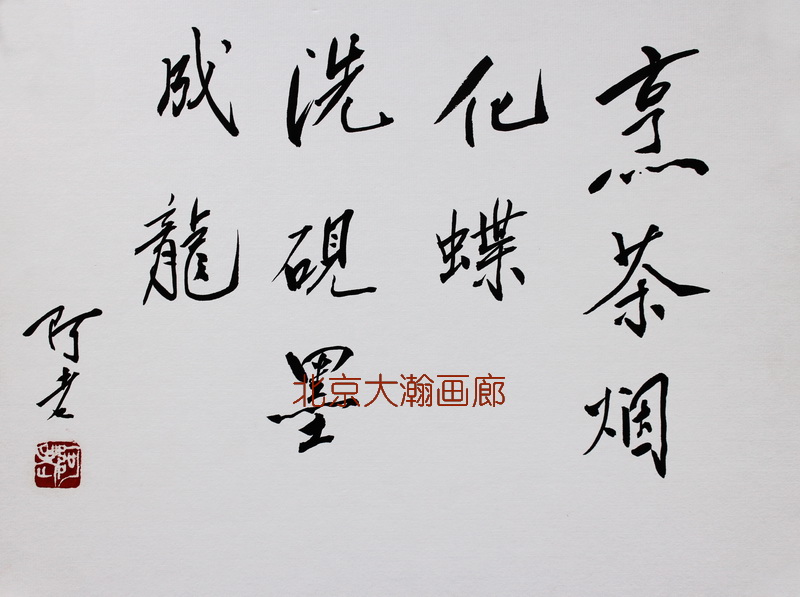 烹茶烟
化蝶
洗砚墨
成龍
阿老
北京大瀚画廊